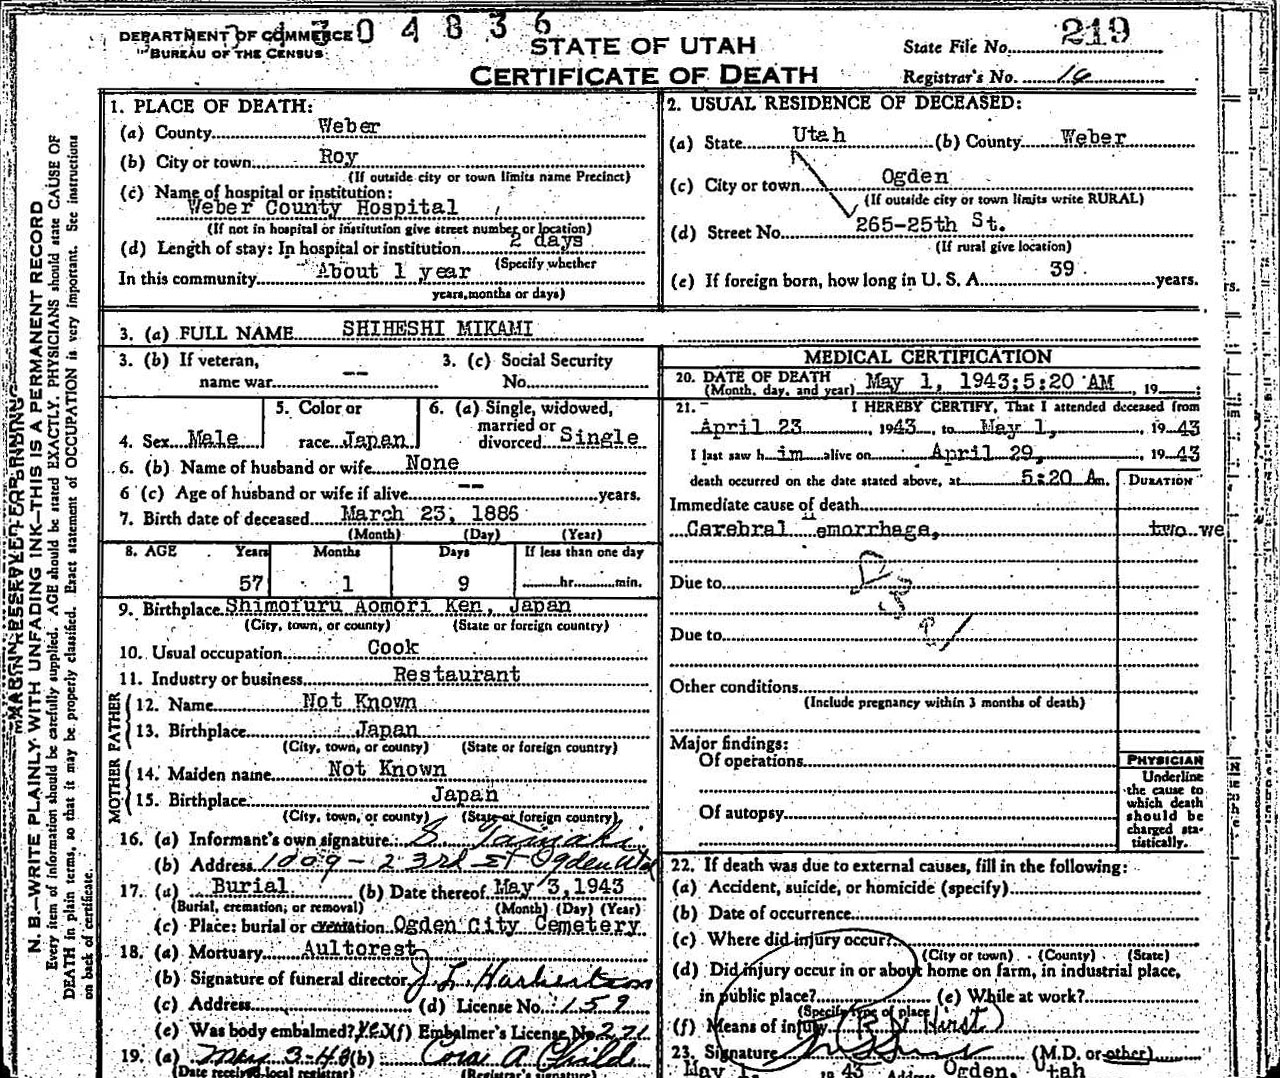 304836
DEPARTMENT OF COMMERCE
BUREAU OF THE CENSUS
STATE OF UTAH
CERTIFICATE OF DEATH
State File No. 219
Registrar's No. 16
MARGIN RESERVED FOR BINDING
N. B.—WRITE PLAINLY, WITH UNFADING INK—THIS IS A PERMANENT RECORD
Every item of information should be carefully supplied. AGE should be stated EXACTLY. PHYSICIANS should state CAUSE OF
DEATH in plain terms, so that it may be properly classified. Exact statement of OCCUPATION is very important. See instructions
on back of certificate.
1. PLACE OF DEATH:
(a) County Weber
(b) City or town Roy
(If outside city or town limits name Precinct)
(c) Name of hospital or institution:
Weber County Hospital
(If not in hospital or institution give street number or location)
(d) Length of stay: In hospital or institution 2 days
(Specify whether
In this community About 1 year
years, months or days)
2. USUAL RESIDENCE OF DECEASED:
(a) State Utah (b) County Weber
(c) City or town Ogden
(If outside city or town limits write RURAL)
(d) Street No. 265-25th St.
(If rural give location)
(e) If foreign born, how long in U. S. A. 39 years.
3. (a) FULL NAME SHIHESHI MIKAMI
3. (b) If veteran, 3. (c) Social Security
name war -- No.
4. Sex Male
5. Color or
race Japan
6. (a) Single, widowed,
married or
divorced Single
6. (b) Name of husband or wife None
6 (c) Age of husband or wife if alive -- years.
7. Birth date of deceased March 23, 1886
(Month) (Day) (Year)
8. AGE Years Months Days If less than one day
57 1 9 hr. min.
9. Birthplace Shimofuru Aomori Ken, Japan
(City, town, or county) (State or foreign country)
10. Usual occupation Cook
11. Industry or business Restaurant
FATHER
12. Name Not Known
13. Birthplace Japan
(City, town, or county) (State or foreign country)
MOTHER
14. Maiden name Not Known
15. Birthplace Japan
(City, town, or county) (State or foreign country)
16. (a) Informant's own signature S.
(b) Address 1009-23rd St Ogden Utah
17. (a) Burial (b) Date thereof May 3, 1943
(Burial, cremation, or removal) (Month) (Day) (Year)
(c) Place: burial or cremation Ogden City Cemetery
18. (a) Mortuary Aultorest
(b) Signature of funeral director
(c) Address (d) License No. 159
(e) Was body embalmed? Yes (f) Embalmer's License No. 271
19. (a) May 3-43 (b) Cora A Childs
(Date received local registrar) (Registrar's signature)
MEDICAL CERTIFICATION
20. DATE OF DEATH
(Month, day, and year) May 1, 1943;5:20 AM , 19 ;
21. I HEREBY CERTIFY, That I attended deceased from
April 23 , 1943, to May 1, , 1943
I last saw h im alive on April 29, , 1943
death occurred on the date stated above, at 5:20 Am.
DURATION
Immediate cause of death
Cerebral emorrhage, two we
Due to
Due to
Other conditions
(Include pregnancy within 3 months of death)
Major findings:
Of operations
Of autopsy
PHYSICIAN
Underline
the cause to
which death
should be
charged sta-
tistically.
22. If death was due to external causes, fill in the following:
(a) Accident, suicide, or homicide (specify)
(b) Date of occurrence
(c) Where did injury occur?
(City or town) (County) (State)
(d) Did injury occur in or about home on farm, in industrial place,
in public place? (e) While at work?
(Specify type of place)
(f) Means of injury
23. Signature (M.D. or other)
May 1, 19 43 Address Ogden, Utah